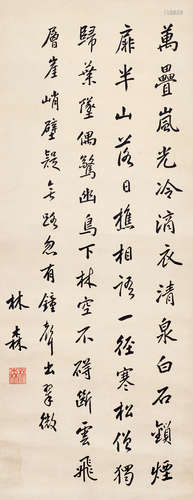 萬疊嵐光冷滴衣清泉白石鎖煙
扉半山落日樵相語一徑寒松僧獨
歸葉墜偶驚幽鳥下林空不礙斷雲飛
層崖峭壁疑無路忽有鐘聲出翠微
林森